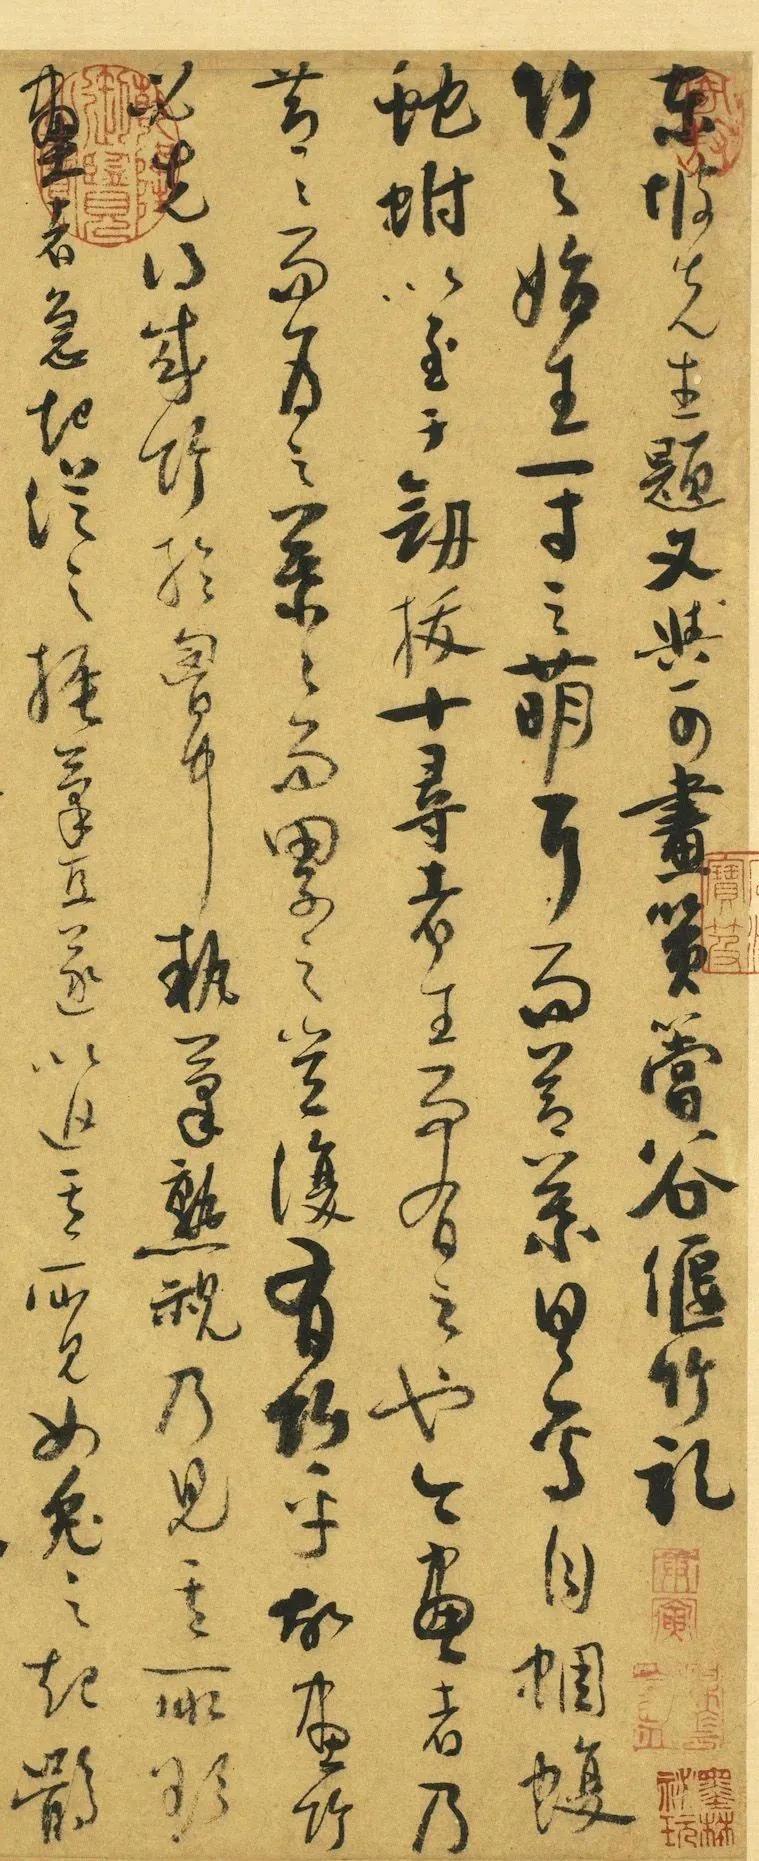 東坡先生題文與可畫篔簹谷偃竹記
竹之始生一寸之萌耳而節葉具焉自蜩蝮
蛇蚹以至于劍拔十尋者生而有之也今畫者乃
節々而為之葉々而累之豈復有竹乎故畫竹
必先得成竹於胷中執筆熟視乃見其所欲
畫者急起從之振筆直遂以追其所見如兔之起鶻
乾隆御覽
寶笈
墨林祕玩